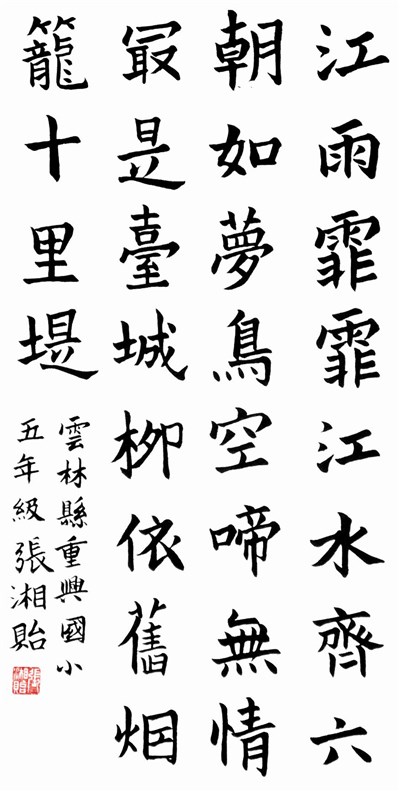 江雨霏霏江水齊六
朝如夢鳥空啼無情
最是臺城柳依舊烟
籠十里堤
雲林縣重興國小
五年級張湘貽